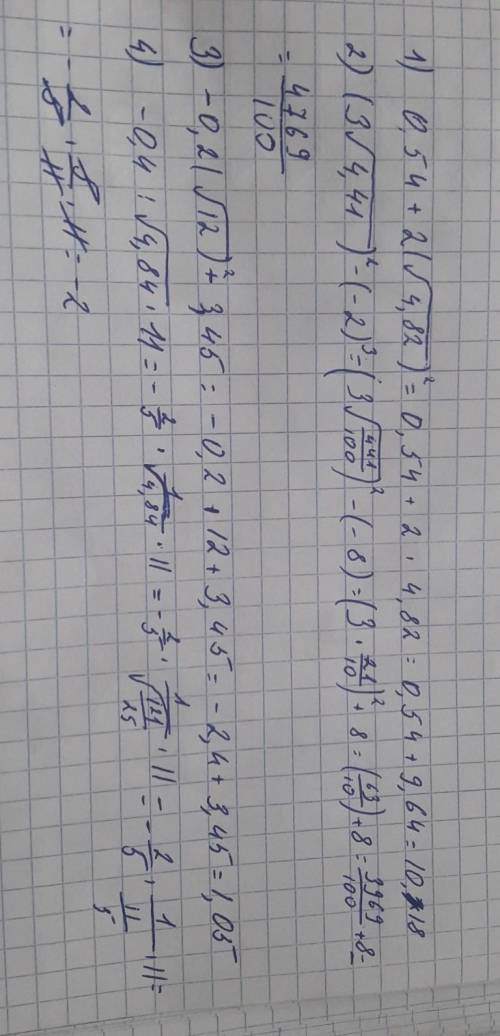 1) 0,54 + 2(√4,82)² = 0,54 + 2 · 4,82 = 0,54 + 9,64 = 10,18
2) (3√4,41)² - (-2)³ = (3√441/100)² - (-8) = (3 · 21/10)² + 8 = (63/10) + 8 = 3969/100 + 8 =
= 4769/100
3) -0,2(√12)² + 3,45 = -0,2 + 12 + 3,45 = -2,4 + 3,45 = 1,05
4) -0,4 : √4,84 · 11 = - 2/5 · 1/√4,84 · 11 = - 2/5 · 1/√121/25 · 11 = - 2/5 · 1/11/5 · 11 =
= - 2/5 · 5/11 · 11 = -2